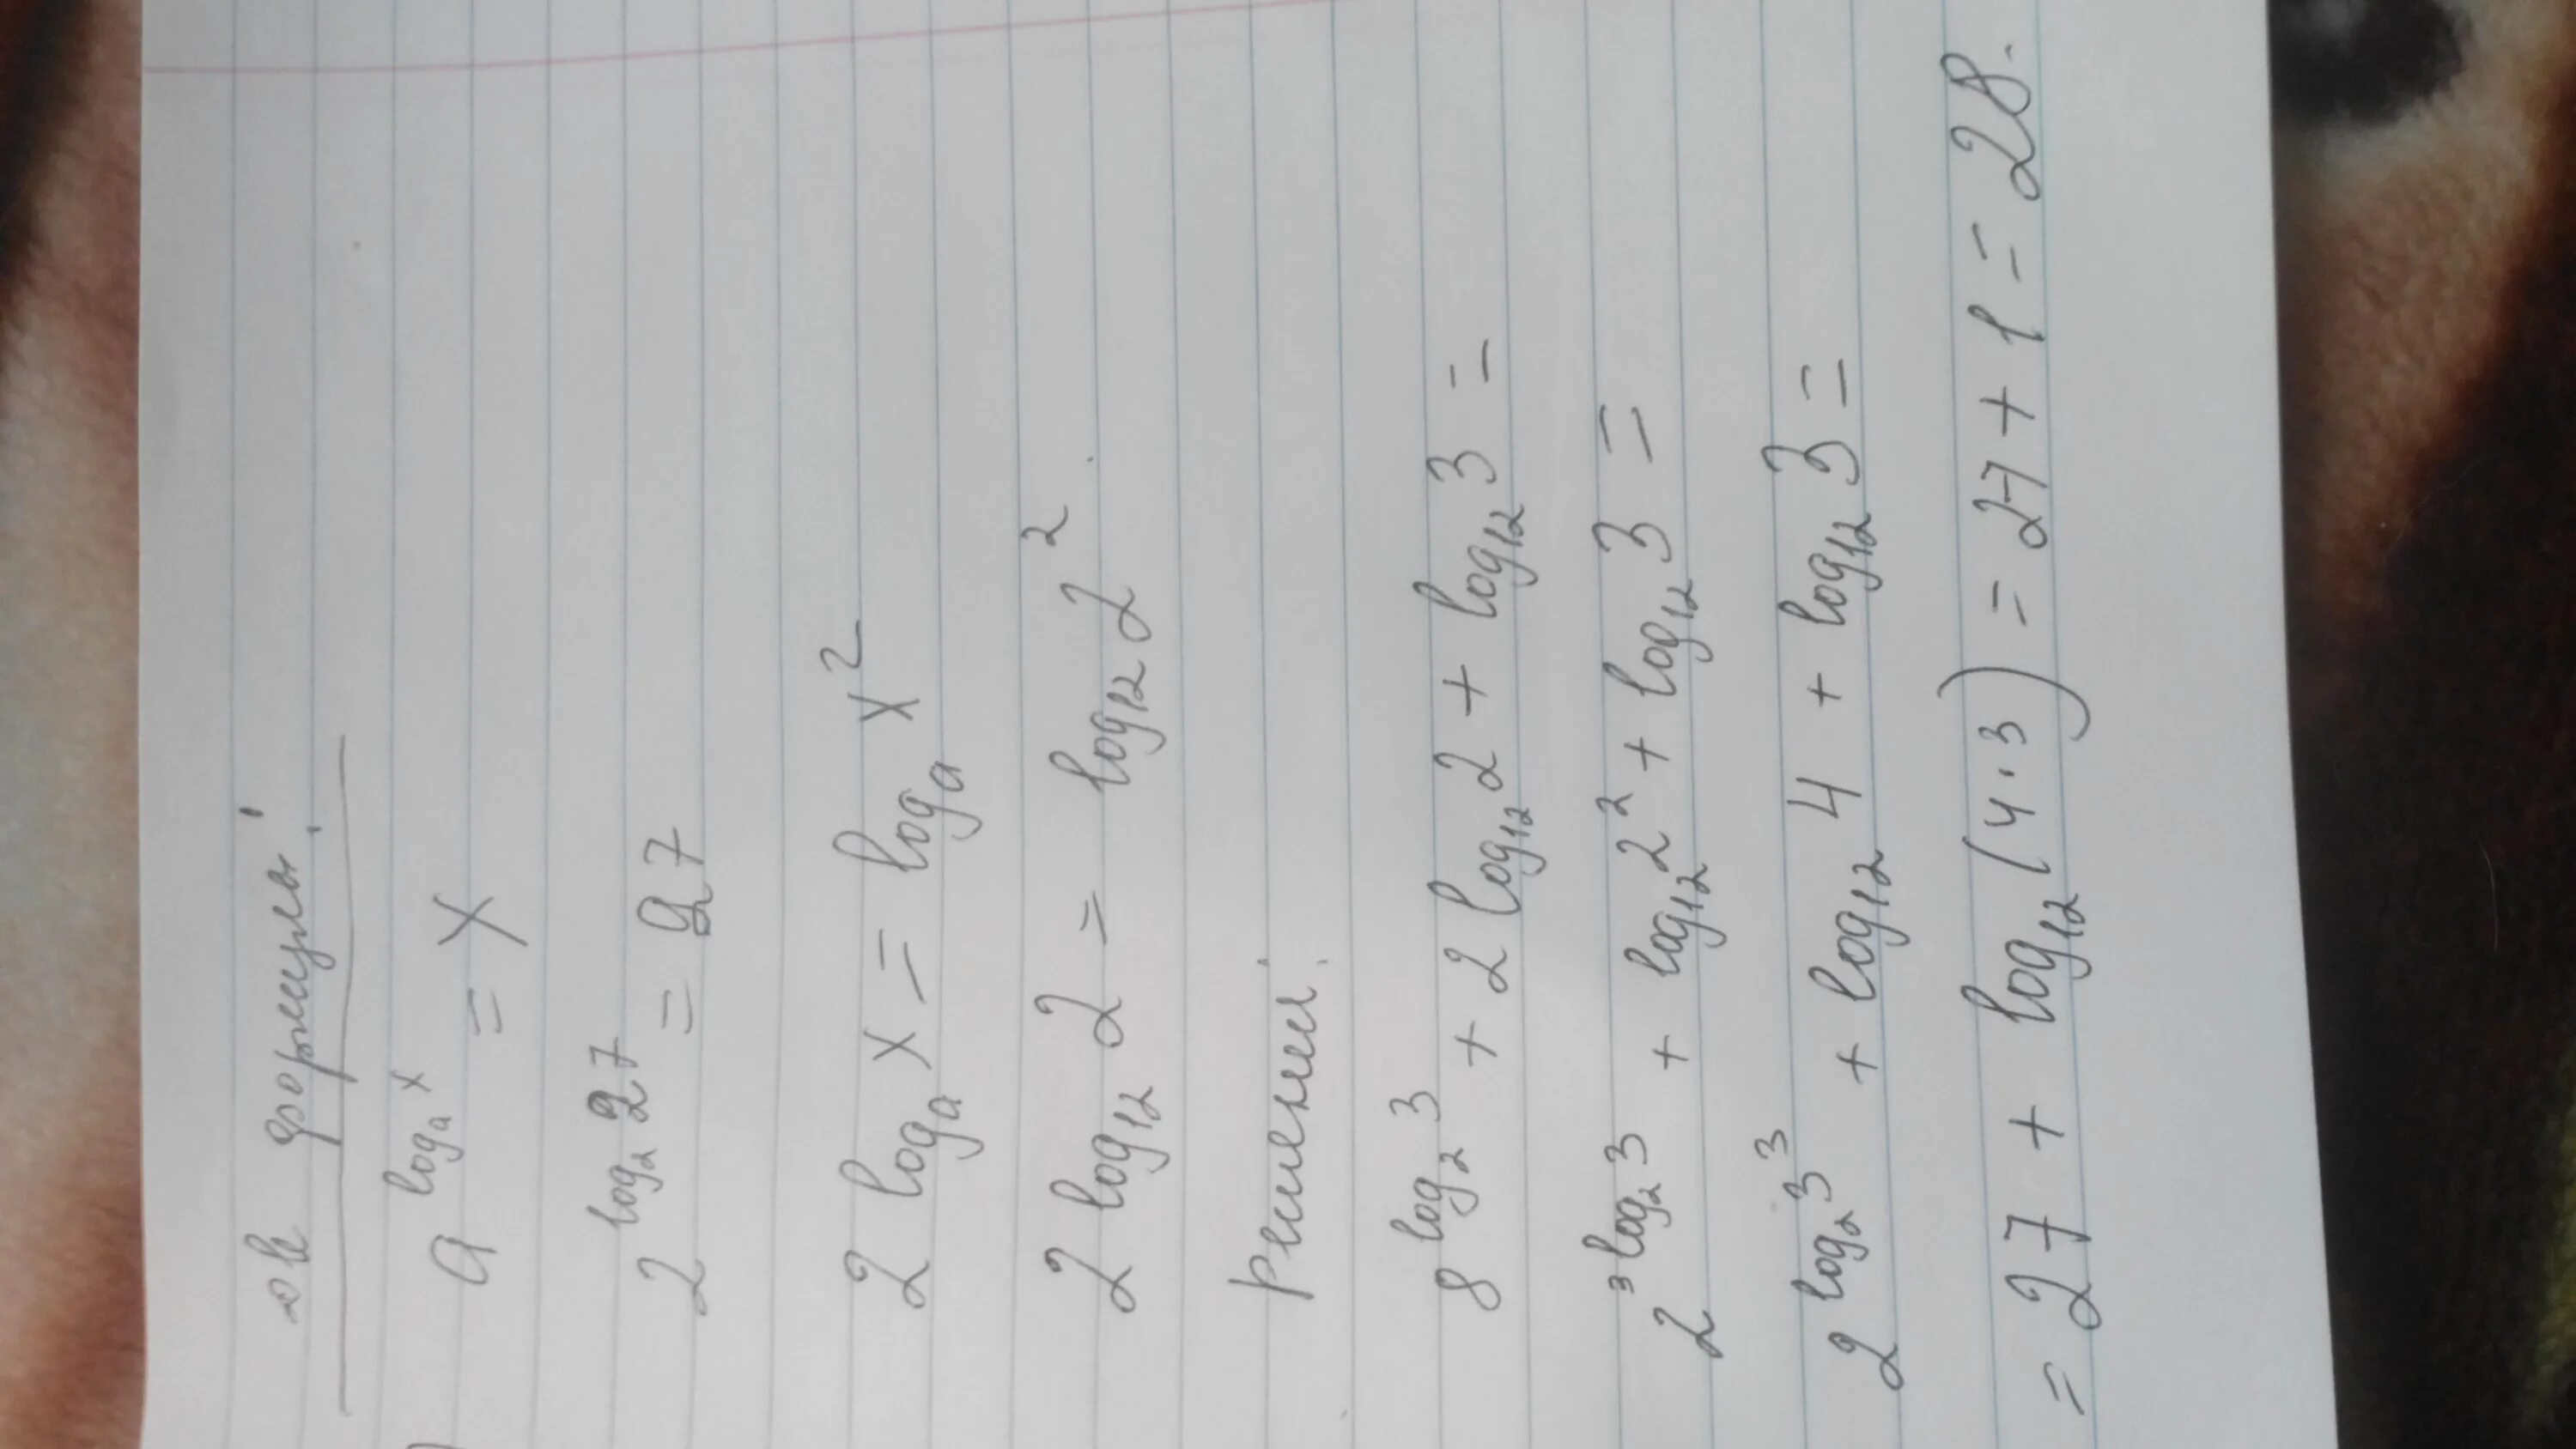 формулы:
a^{log_a x} = x
2^{log_2 27} = 27
2 log_a x = log_a x^2
2 log_12 2 = log_12 2^2
решение:
8^{log_2 3} + 2 log_12 2 + log_12 3 =
2^{3 log_2 3} + log_12 2^2 + log_12 3 =
2^{log_2 3^3} + log_12 4 + log_12 3 =
= 27 + log_12 (4·3) = 27 + 1 = 28.